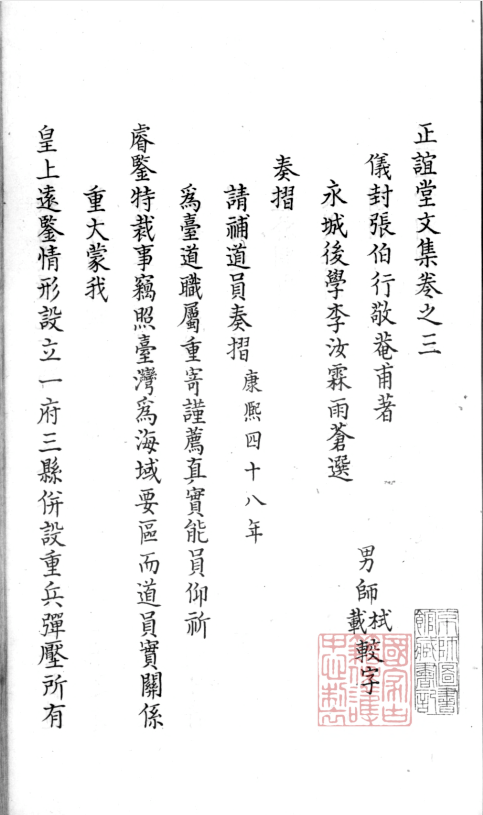 正誼堂文集卷之三
儀封張伯行敬菴甫著
永城後學李汝霖雨蒼選
男師栻載較字
奏摺
請補道員奏摺康熙四十八年
爲臺道職屬重寄謹薦真實能員仰祈
睿鑒特裁事竊照臺灣爲海域要區而道員實關係
重大蒙我
皇上遠鑒情形設立一府三縣併設重兵彈壓所有
京師圖書館藏書記